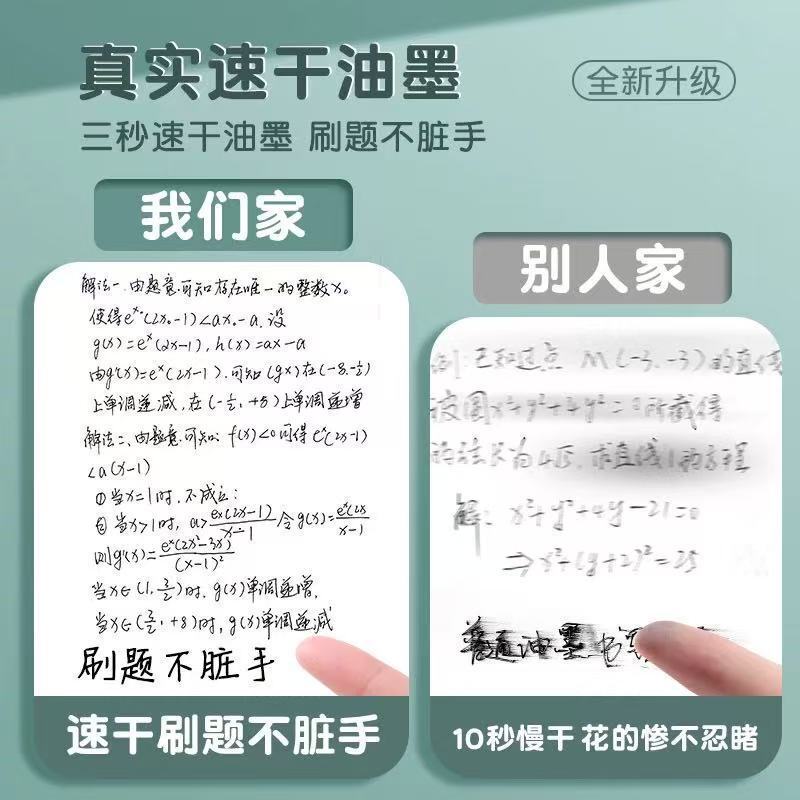 真实速干油墨
全新升级
三秒速干油墨 刷题不脏手
我们家
解法一、由题意可知存在唯一的整数x。
使得eˣ˚(2x₀-1)<ax₀-a.设
g(x)=eˣ(2x-1), h(x)=ax-a
由g'(x)=eˣ(2x-1).可知(gx)在(-8.-½)
上单调递减,在(-½,+8)上单调递增
解法二、由题意可知: f(x)<0可得eˣ(2x-1)
<a(x-1)
①当x=1时,不成立:
②当x>1时, a>ex(2x-1)/x-1 令g(x)=eˣ(2x/x-1
则g'(x)=eˣ(2x²-3x)/(x-1)²
当x∈(1,3/2)时,g(x)单调递增,
当x∈(3/2,+8)时,g(x)单调递减
刷题不脏手
速干刷题不脏手
别人家
例:已知过点 M(-3,-3)的直线
被圆x²+y²+4y²=0所截得
求直线l的方程
解: x²+y²+4y-21=0
⇒x²+(y+2)²=25
普通油墨书写
10秒慢干 花的惨不忍睹